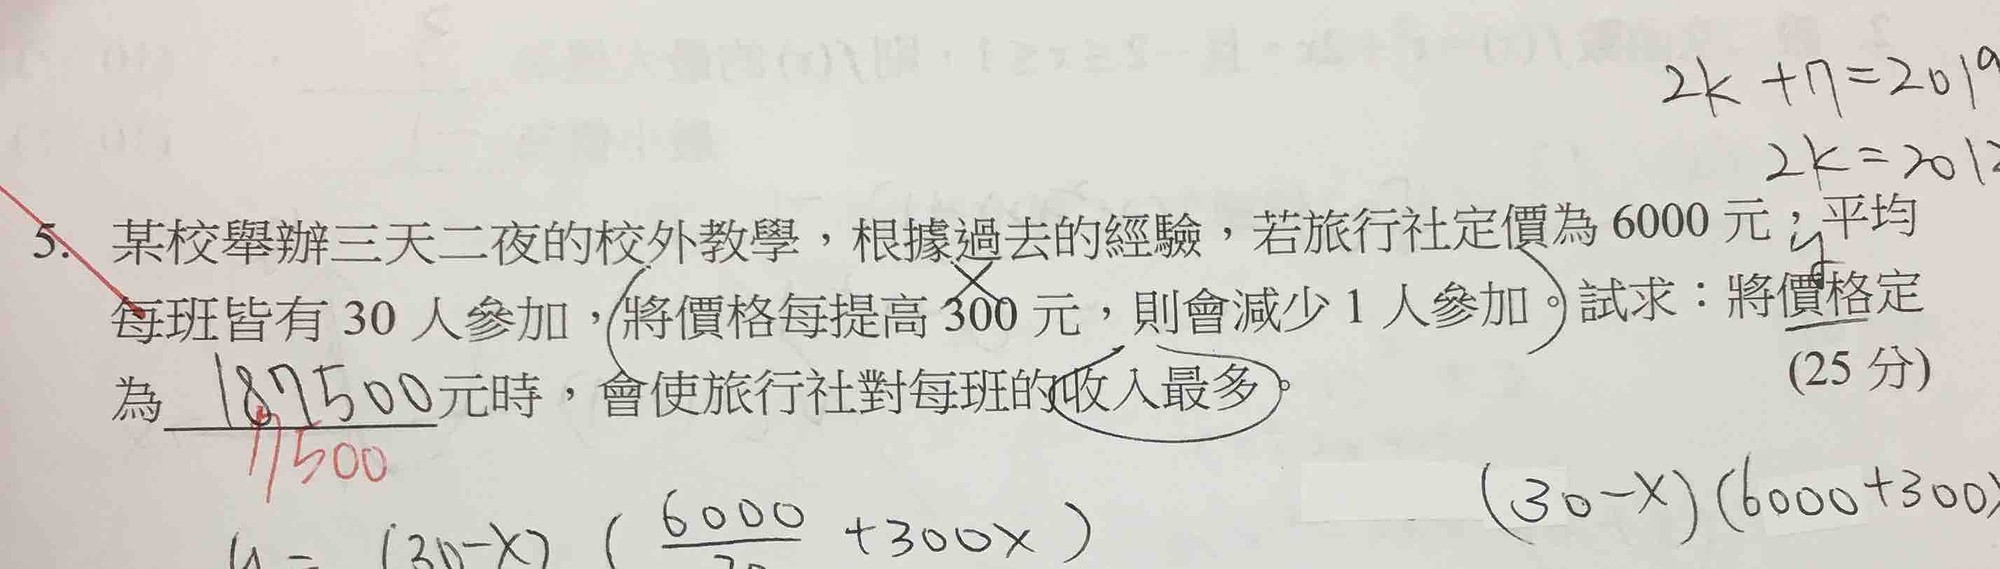 2k +7=2019
2k=201
5. 某校舉辦三天二夜的校外教學，根據過去的經驗，若旅行社定價為 6000 元，平均
每班皆有 30 人參加，將價格每提高 300 元，則會減少 1 人參加。試求：將價格定
為 187500 元時，會使旅行社對每班的收入最多。 (25 分)
7500
(30-x)(6000+300x
y = (30-x) ( 6000 +300x )